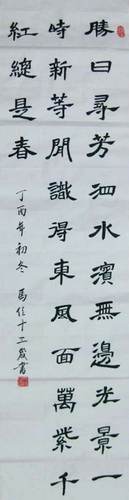 勝日尋芳泗水濱無邊光景一
時新等閒識得東風面萬紫千
紅緫是春
丁酉年初冬